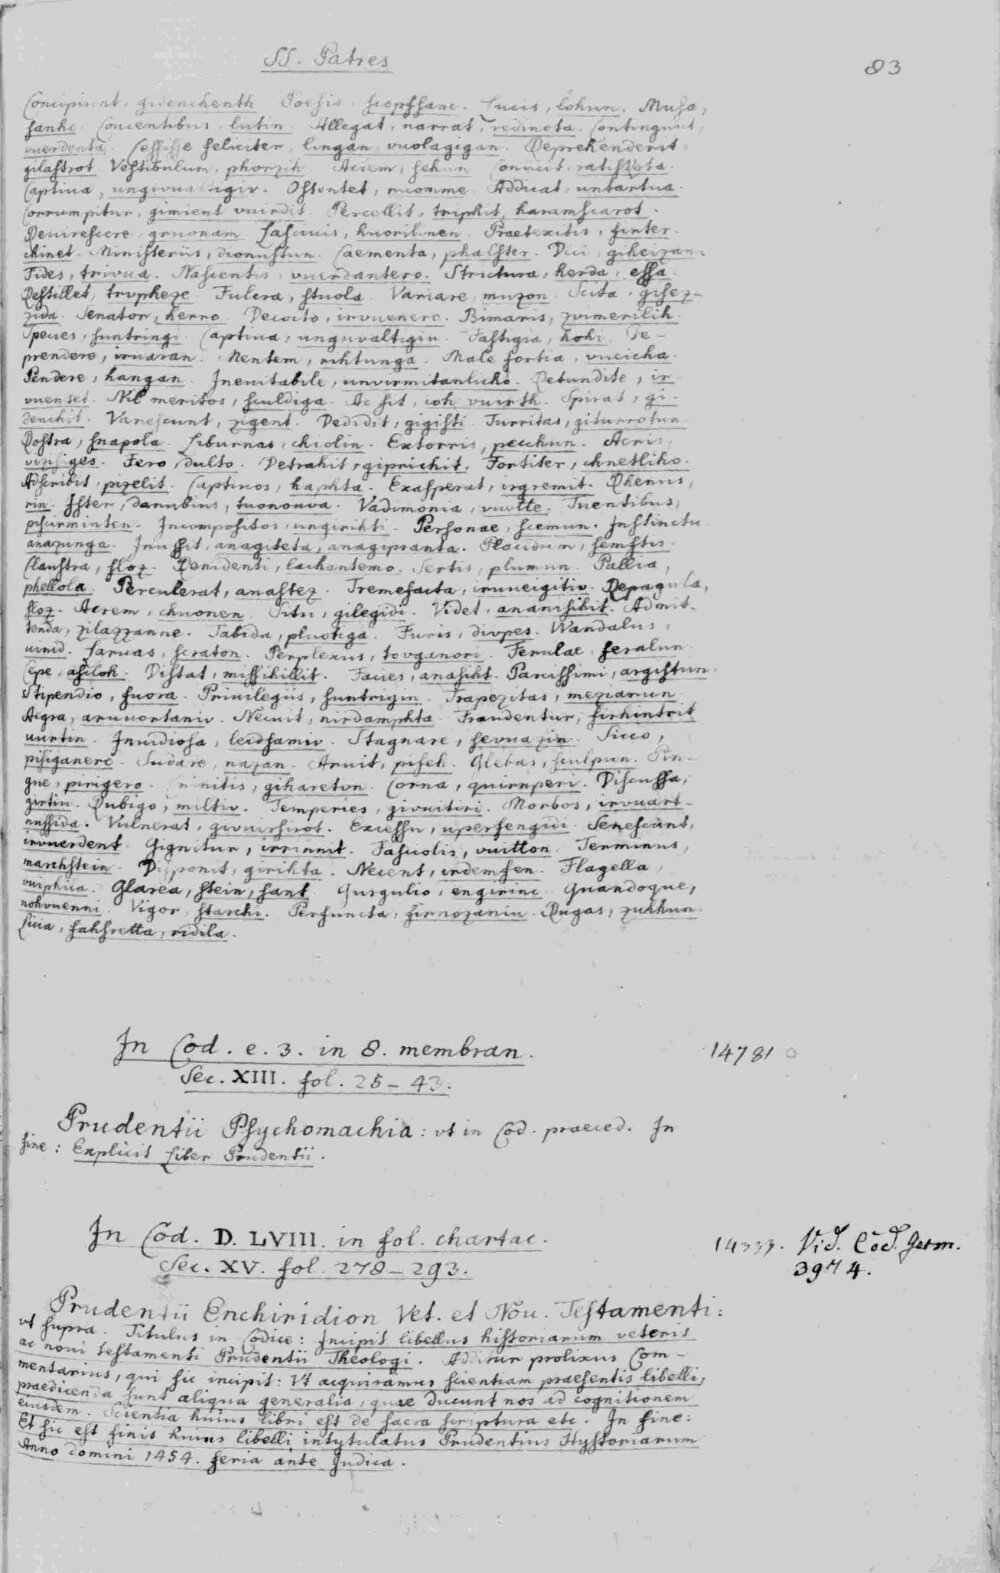 SS. Patres
83
Concipiunt, giuenchenth. Poesis, scopfsanc. Lucis, lohun. Musa,
sanho. Concentibus, lutin. Allegat, narrat, redinota. Contingunt,
vuerdonta. Sessisse feliciter, lingan, vuolagigan. Deprehenderit
gilastrot. Vestibulum, phorzih. Aciem, sehun. Conncit, ratissota.
Captiua, . Ostentet, ruomme. Adducat, untartua.
Corrumpitur, gimient vuirdit. Percellit, triphit, haramscarot.
Deuirescere, gruonam. Lasciuis, huorilinen. Praetexitis, ginter.
chinet. Ministeriis, dionustun. Caementa, phalster. Dici, giheizan.
Fides, triuua. Nascentis, vuerdantero. Strictura, herda, essa.
Destillet, trupheze. Fulcra, stuola. Variare, muzon. Scita, gisez-
zida. Senator, herro. Decocto, irvuenero. Bimaris, zuimerilih.
Specus, suntringi. Captiua, unguvaltigiu. Fastigia, hohi. De-
prendere, iruaran. Mentem, rihtunga. Male fortia, vueicha.
Pendere, hangan. Ineuitabile, unvirmitanlicho. Retundite, ir-
vuentet. Nil meritos, sculdiga. Ac sit, ioh vuirth. Spirat, gi-
denchit. Vanescunt, zigent. Dedidit, gigisti. Turritas, giturrotun.
Rostra, snapola. Liburnas, chiolin. Extorris, pecchun. Acris,
vizsiges. Fero, dulto. Detrahit, giprichit. Fortiter, chnetliho.
Adscribit, pizelit. Captiuos, haphta. Exasperat, irgremit. Rhenus,
rin. Ister, danubius, tuonouva. Vadimonia, vuette. Tuentibus,
piscirminten. Incompositos, ungirihti. Personae, scemun. Instinctu
anazunga. Iniussit, anagiteta, anagipranta. Placidum, semstis.
Claustra, sloz. Renidenti, lachantemo. Sertis, plumun. Pallia,
phellola. Perculerat, anastez. Tremefacta, irvueigitiv. Repagula,
sloz. Acrem, chuonen. Situ, gilegidi. Videt, ananisihit. Admit-
tenda, zilazzanne. Tabida, pluotiga. Furis, diupes. Wandalus,
uinid. Laruas, scraton. Perplexus, tovganori. Ferulae, feralun.
Cepe, asiloh. Distat, missihillit. Faues, anasiht. Parcissimi, argistun.
Stipendio, fuora. Priuilegiis, suntrigin. Trapezitas, mezzarun.
Aegra, aruuortaniv. Necuit, nirdamphta. Fraudentur, firhintrit
uurtin. Inuidiosa, leidsamiv. Stagnare, sevuazin. Sicco,
pisiganero. Sudare, nazan. Aruit, piseh. Glebas, sculpun. Pin-
gue, pirigero. Crinitis, giharetvn. Corna, quirnperi. Discussa,
girtin. Rubigo, miltiv. Temperies, givuitiri. Morbos, irvuart-
nussida. Vulnerat, givuirsirot. Excessu, upersengidi. Senescunt,
irvuerdent. Gignitur, irrinnit. Fasciolis, vuitton. Terminus,
marchstein. Disponit, girihta. Necent, irdemsen. Flagella,
vuiphila. Glarea, stein, sant. Gurgulio, engirinc. Quandoque,
nohvuenni. Vigor, starchi. Perfuncta, firnozaniu. Rugas, zukhun.
Licia, fahsretta, ridila.
In Cod. e. 3. in 8. membran.
14781
Sec. XIII. fol. 25–43.
Prudentii Psychomachia: vt in Cod. praeced. In
fine: Explicit Liber Prudentii.
In Cod. D. LVIII. in fol. chartac.
14333. Vid. Cod. germ.
3974.
Sec. XV. fol. 278–293.
Prudentii Enchiridion Vet. et Nou. Testamenti:
vt supra. Titulus in Codice: Incipit libellus historiarum veteris
ac noui testamenti Prudentii Theologi. Additur prolixus Com-
mentarius, qui sic incipit: Vt acquiramus scientiam praesentis libelli,
praedicenda sunt aliqua generalia, quae ducunt nos ad cognitionem
eiusdem. Scientia huius libri est de sacra scriptura etc. In fine:
Et sic est finis huius libelli intytulatus Prudentius Hystoriarum
Anno domini 1454. feria ante Judica.